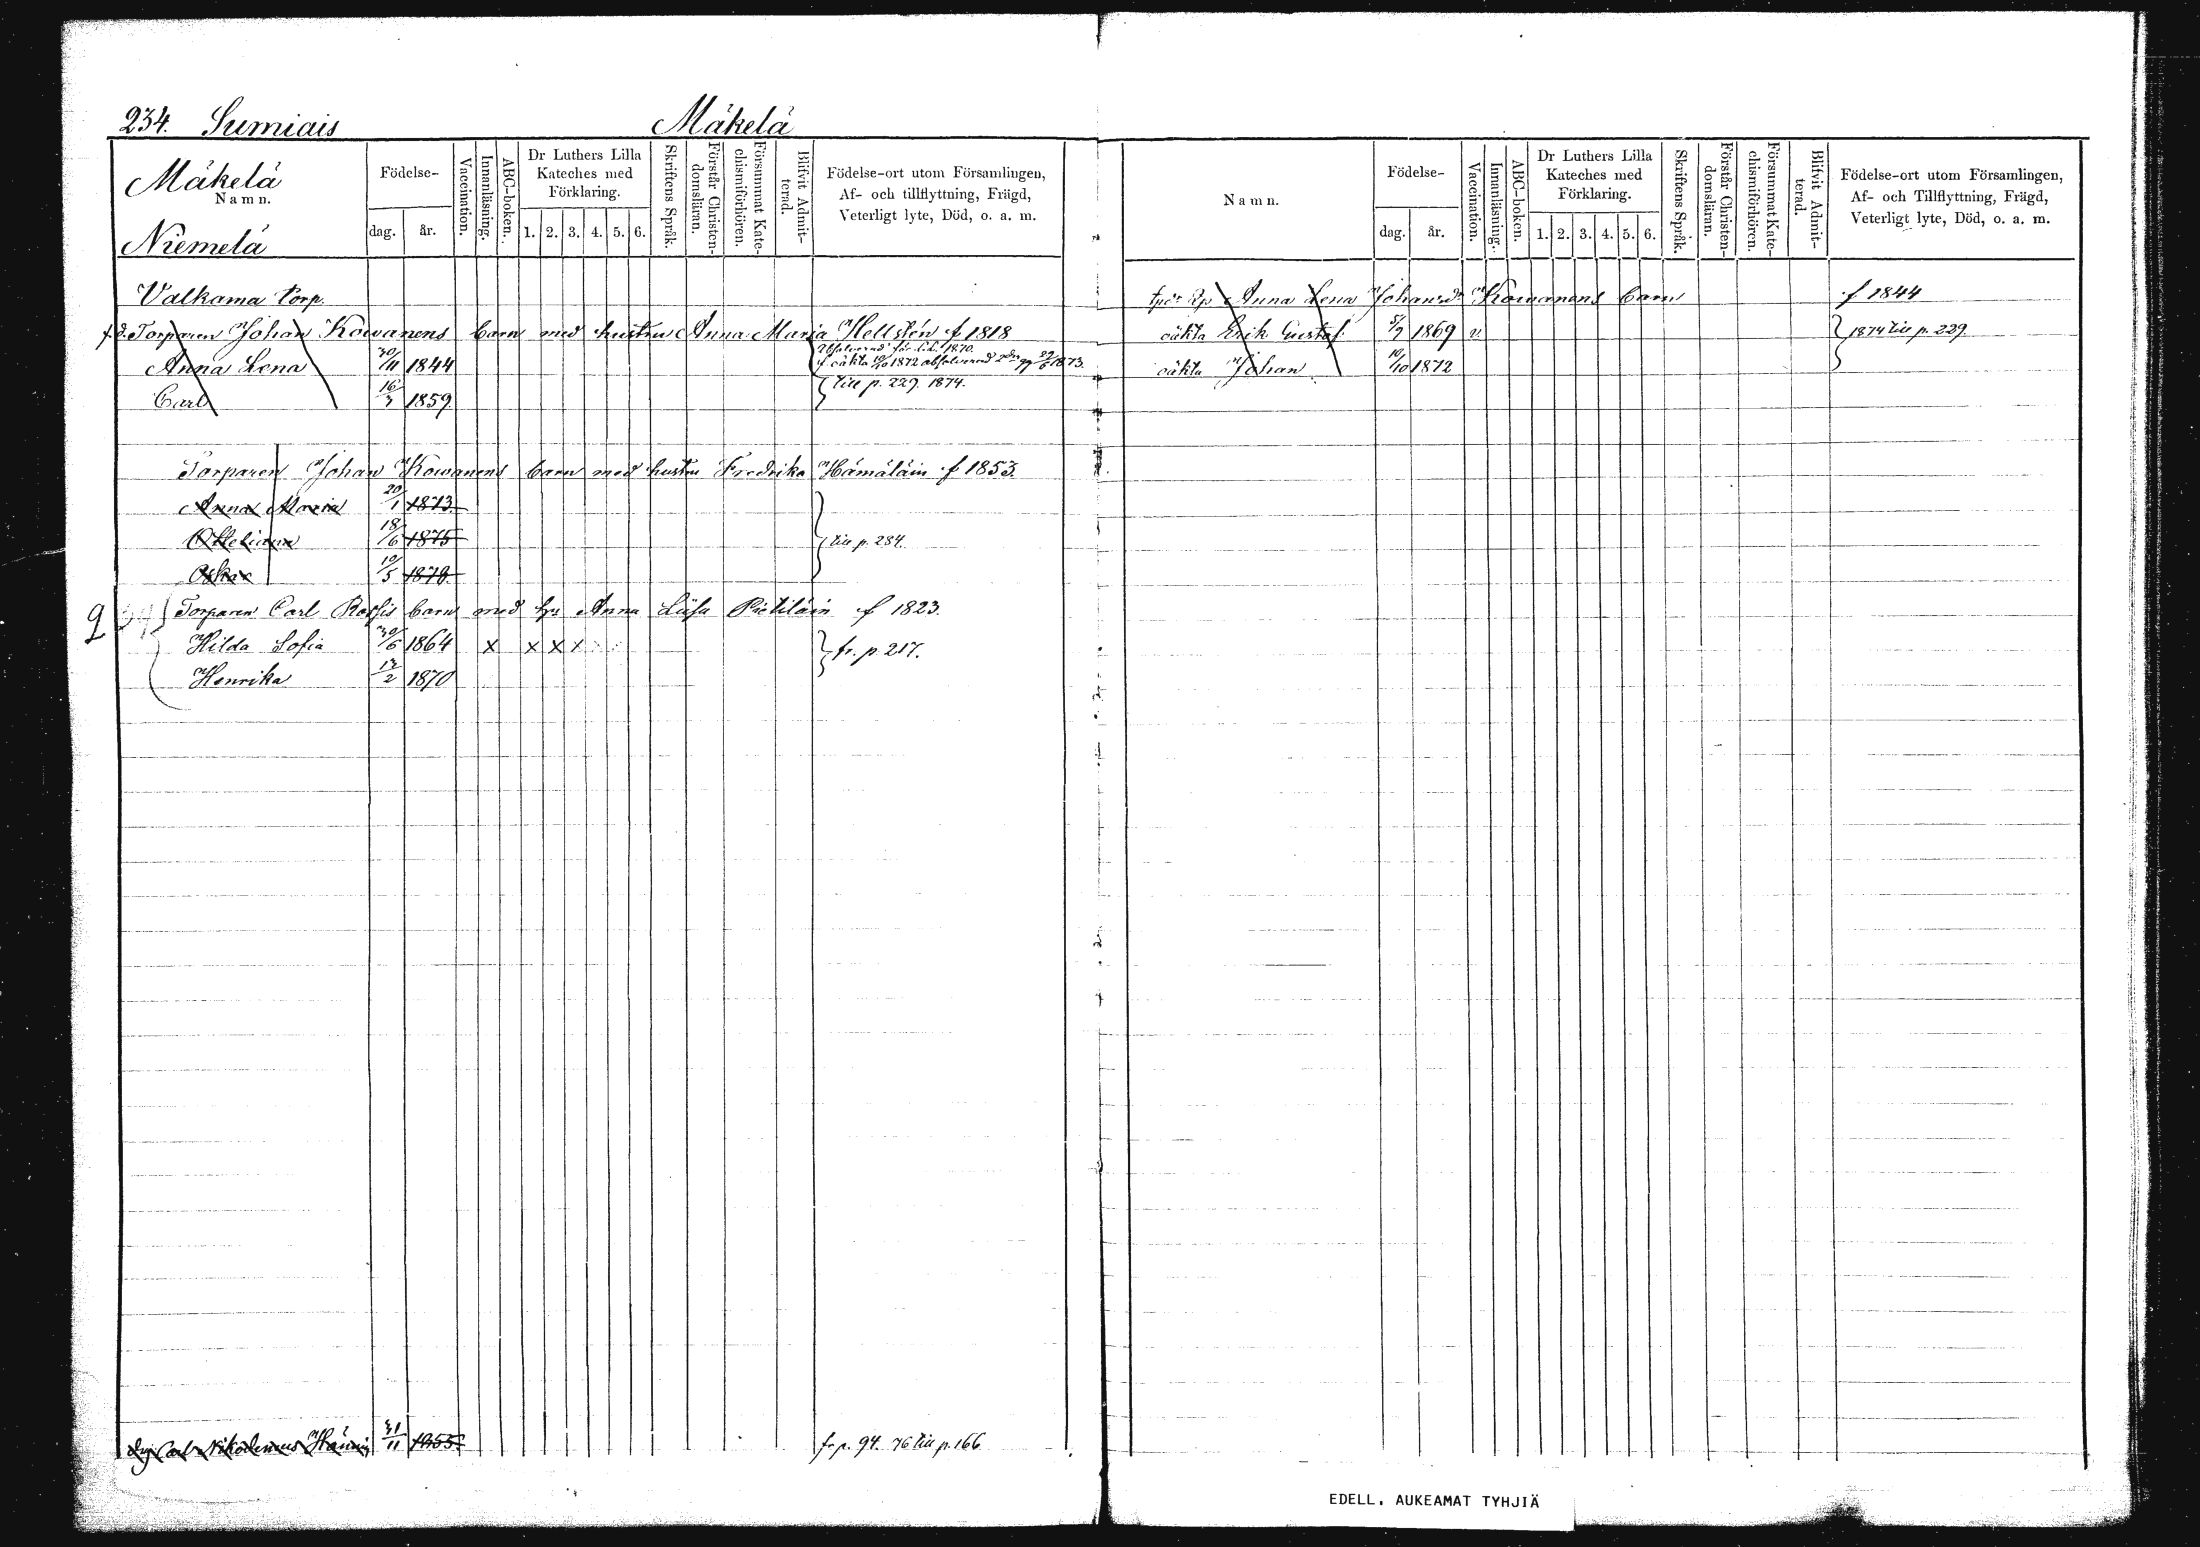 234. Sumiais Mäkelä
Mäkelä
Namn.
Niemelä
Födelse-
dag. år.
Vaccination.
Innanläsning.
ABC-boken.
Dr Luthers Lilla
Kateches med
Förklaring.
1. 2. 3. 4. 5. 6.
Skriftens Språk.
Förstår Christen-
domsläran.
Försummat Kate-
chismiförhören.
Blifvit Admit-
terad.
Födelse-ort utom Församlingen,
Af- och tillflyttning, Frägd,
Veterligt lyte, Död, o. a. m.
Valkama Torp.
f.d. Torparen Johan Kowanens barn med hustru Anna Maria Hellstén f 1818
Anna Lena 30/11 1844 f. oäkta 10/10 1872 absolverad
Carl 16/3 1859. till p. 229. 1874.
Torparen Johan Kowanens barn med hustru Fredrika Hämäläin f 1853.
Anna Maria 20/1 1873.
Otteliana 18/6 1875 till p. 284.
Oskar 10/5 1878.
Torparen Carl Rossis barn med hu Anna Lisa Pietiläin f 1823.
Hilda Sofia 30/6 1864 x x x x fr. p. 217.
Henrika 12/2 1870
dg Carl Nikodemus Hännin 31/11 1855. fr p. 94. 76 till p. 166
Namn.
Födelse-
dag. år.
Vaccination.
Innanläsning.
ABC-boken.
Dr Luthers Lilla
Kateches med
Förklaring.
1. 2. 3. 4. 5. 6.
Skriftens Språk.
Förstår Christen-
domsläran.
Försummat Kate-
chismiförhören.
Blifvit Admit-
terad.
Födelse-ort utom Församlingen,
Af- och Tillflyttning, Frägd,
Veterligt lyte, Död, o. a. m.
Anna Lena Johansdr Kowanens barn f 1844
oäkta Erik Gustaf 5/9 1869 v. 1874 till p. 229.
oäkta Johan 10/10 1872
EDELL. AUKEAMAT TYHJIÄ